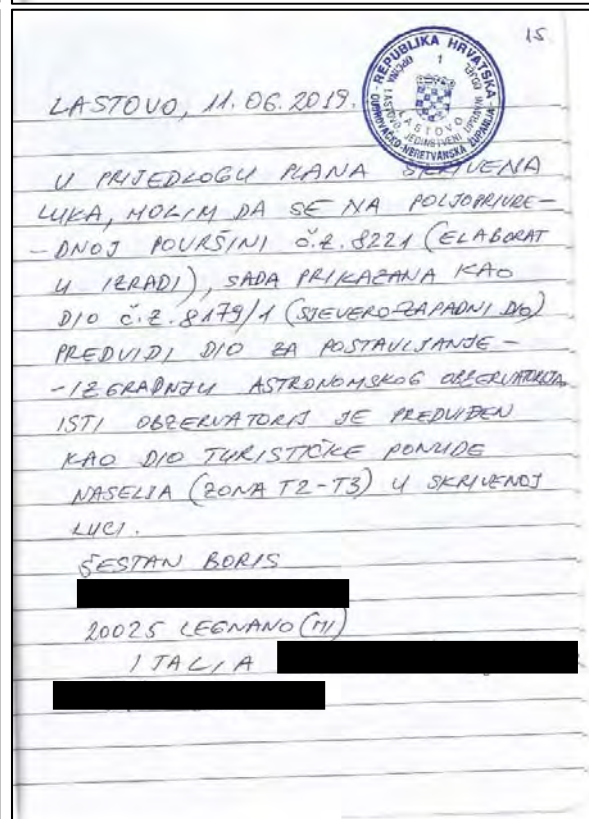 15.
REPUBLIKA HRVATSKA
1
DUBROVAČKO-NERETVANSKA ŽUPANIJA
OPĆINA LASTOVO, JEDINSTVENI UPRAVNI ODJEL
LASTOVO
LASTOVO, 11.06.2019.
U PRIJEDLOGU PLANA SKRIVENA
LUKA, MOLIM DA SE NA POLJOPRIVRE-
-DNOJ POVRŠINI Č.Z. 8221 (ELABORAT
U IZRADI), SADA PRIKAZANA KAO
DIO Č.Z. 8179/1 (SJEVERO-ZAPADNI DIO)
PREDVIDI DIO ZA POSTAVLJANJE-
-IZGRADNJU ASTRONOMSKOG OBZERVATORIJA,
ISTI OBZERVATORIJ JE PREDVIĐEN
KAO DIO TURISTIČKE PONUDE
NASELJA (ZONA T2-T3) U SKRIVENOJ
LUCI.
ŠESTAN BORIS
20025 LEGNANO (MI)
ITALIA